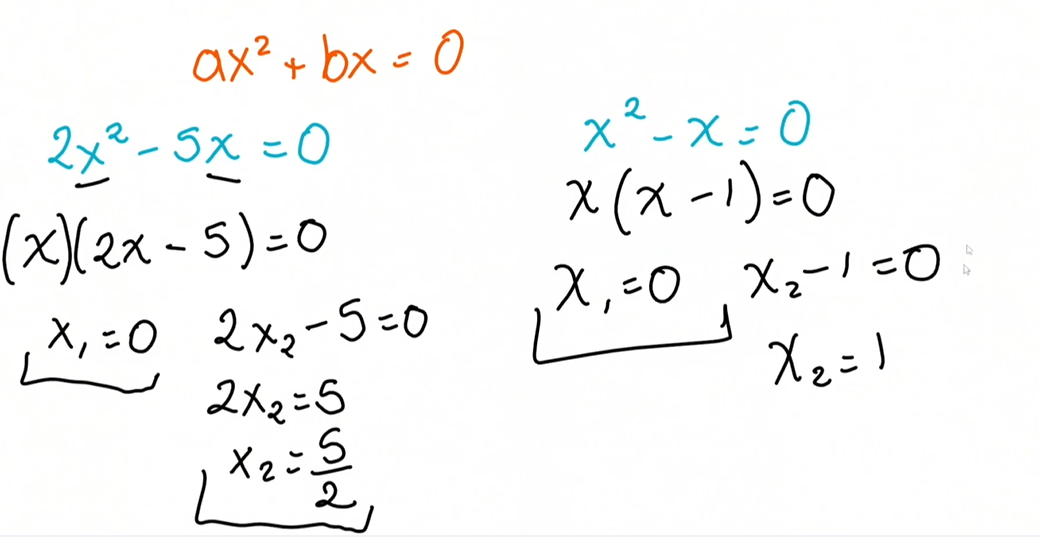 ax² + bx = 0
2x² - 5x = 0
(x)(2x - 5) = 0
x₁ = 0 2x₂ - 5 = 0
2x₂ = 5
x₂ = 5/2
x² - x = 0
x(x - 1) = 0
x₁ = 0 x₂ - 1 = 0
x₂ = 1